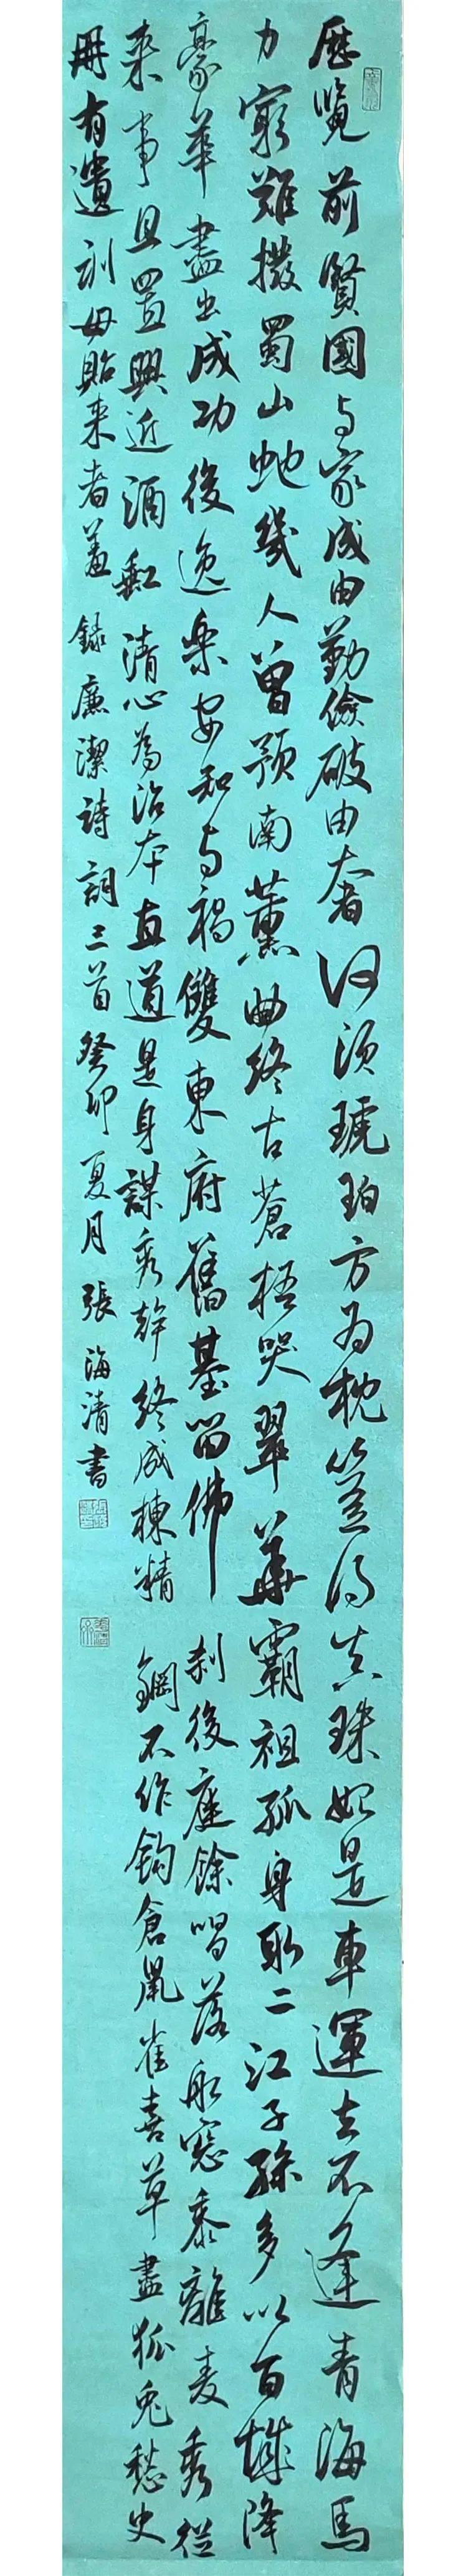 歷覽前賢國与家成由勤儉破由奢何須琥珀方為枕豈得真珠始是車運去不逢青海馬
力窮難拔蜀山虵幾人曾預南薰曲終古蒼梧哭翠華霸祖孤身取二江子孫多以百城降
豪華盡出成功後逸樂安知与禍雙東府舊基留佛刹後庭餘唱落船窓黍離麦秀從
来事且置興近酒缸清心為治本直道是身謀秀幹終成棟精鋼不作鈎倉鼠雀喜草盡狐兎愁史
冊有遺訓毋貽来者羞 録廉潔詩詞三首癸卯夏月張海清書